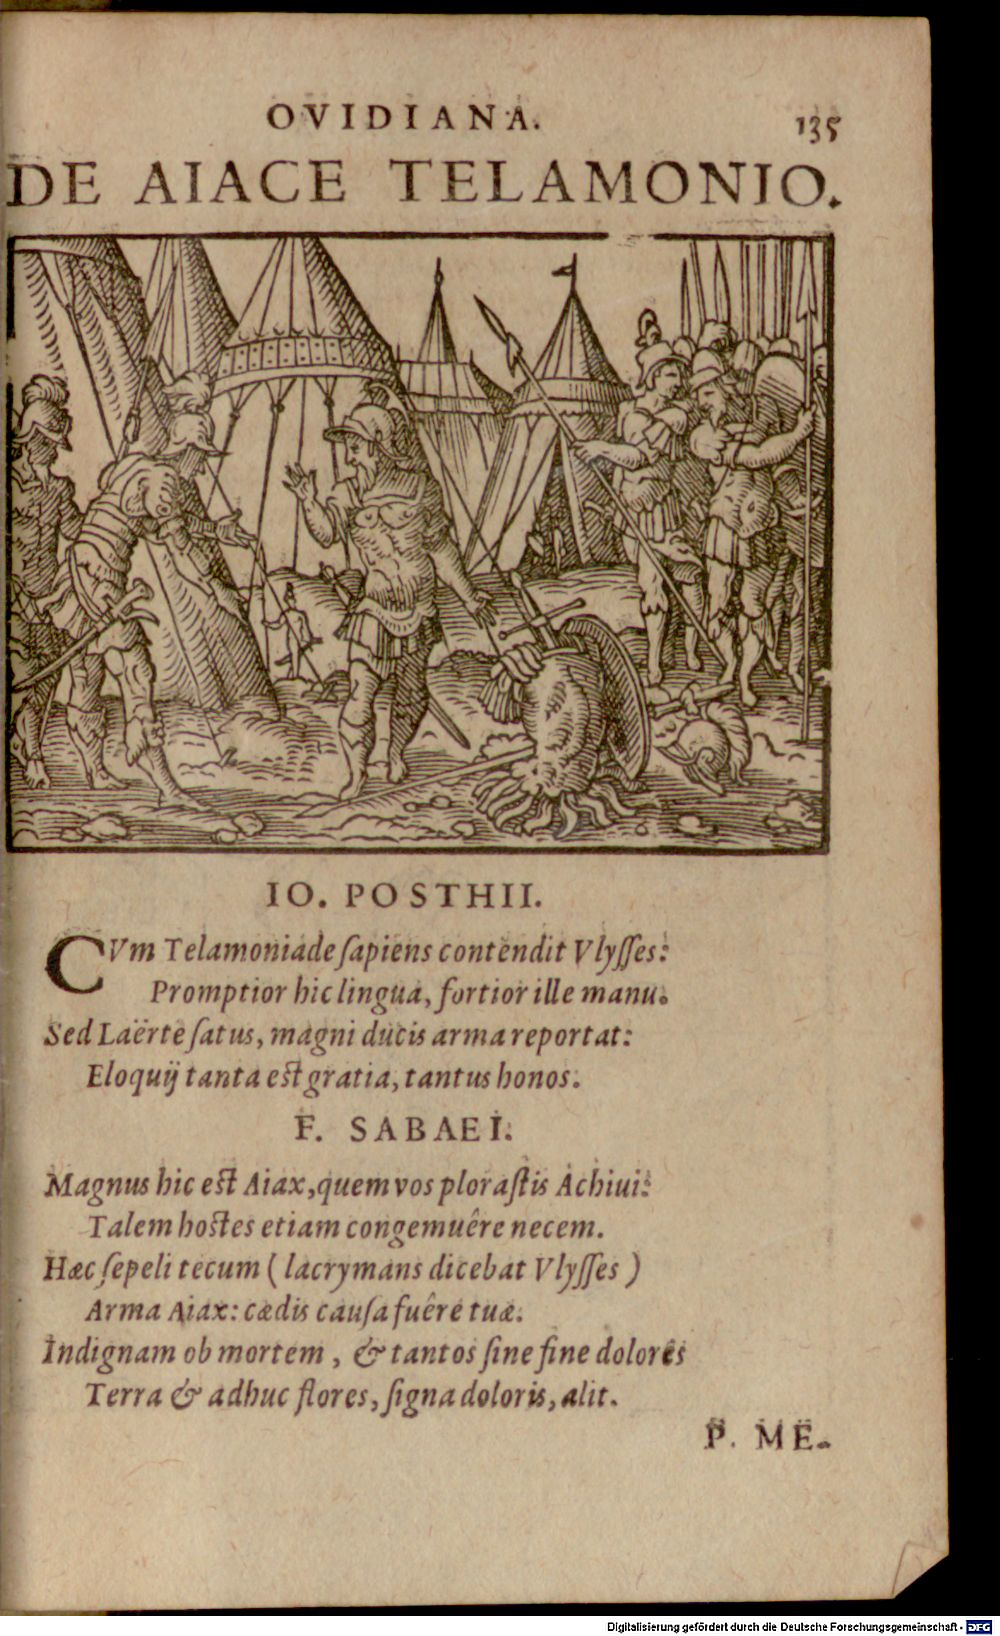 OVIDIANA. 135
DE AIACE TELAMONIO.
IO. POSTHII.
CVm Telamoniade ſapiens contendit Vlyſſes:
Promptior hic lingua, fortior ille manu.
Sed Laërte ſatus, magni ducis arma reportat:
Eloquij tanta est gratia, tantus honos.
F. SABAEI.
Magnus hic est Aiax, quem vos ploraſtis Achiui:
Talem hostes etiam congemuêre necem.
Hæc ſepeli tecum (lacrymans dicebat Vlyſſes)
Arma Aiax: cædis cauſa fuêre tuæ.
Indignam ob mortem, & tantos ſine fine dolores
Terra & adhuc flores, ſigna doloris, alit.
P. ME-
Digitalisierung gefördert durch die Deutsche Forschungsgemeinschaft - DFG